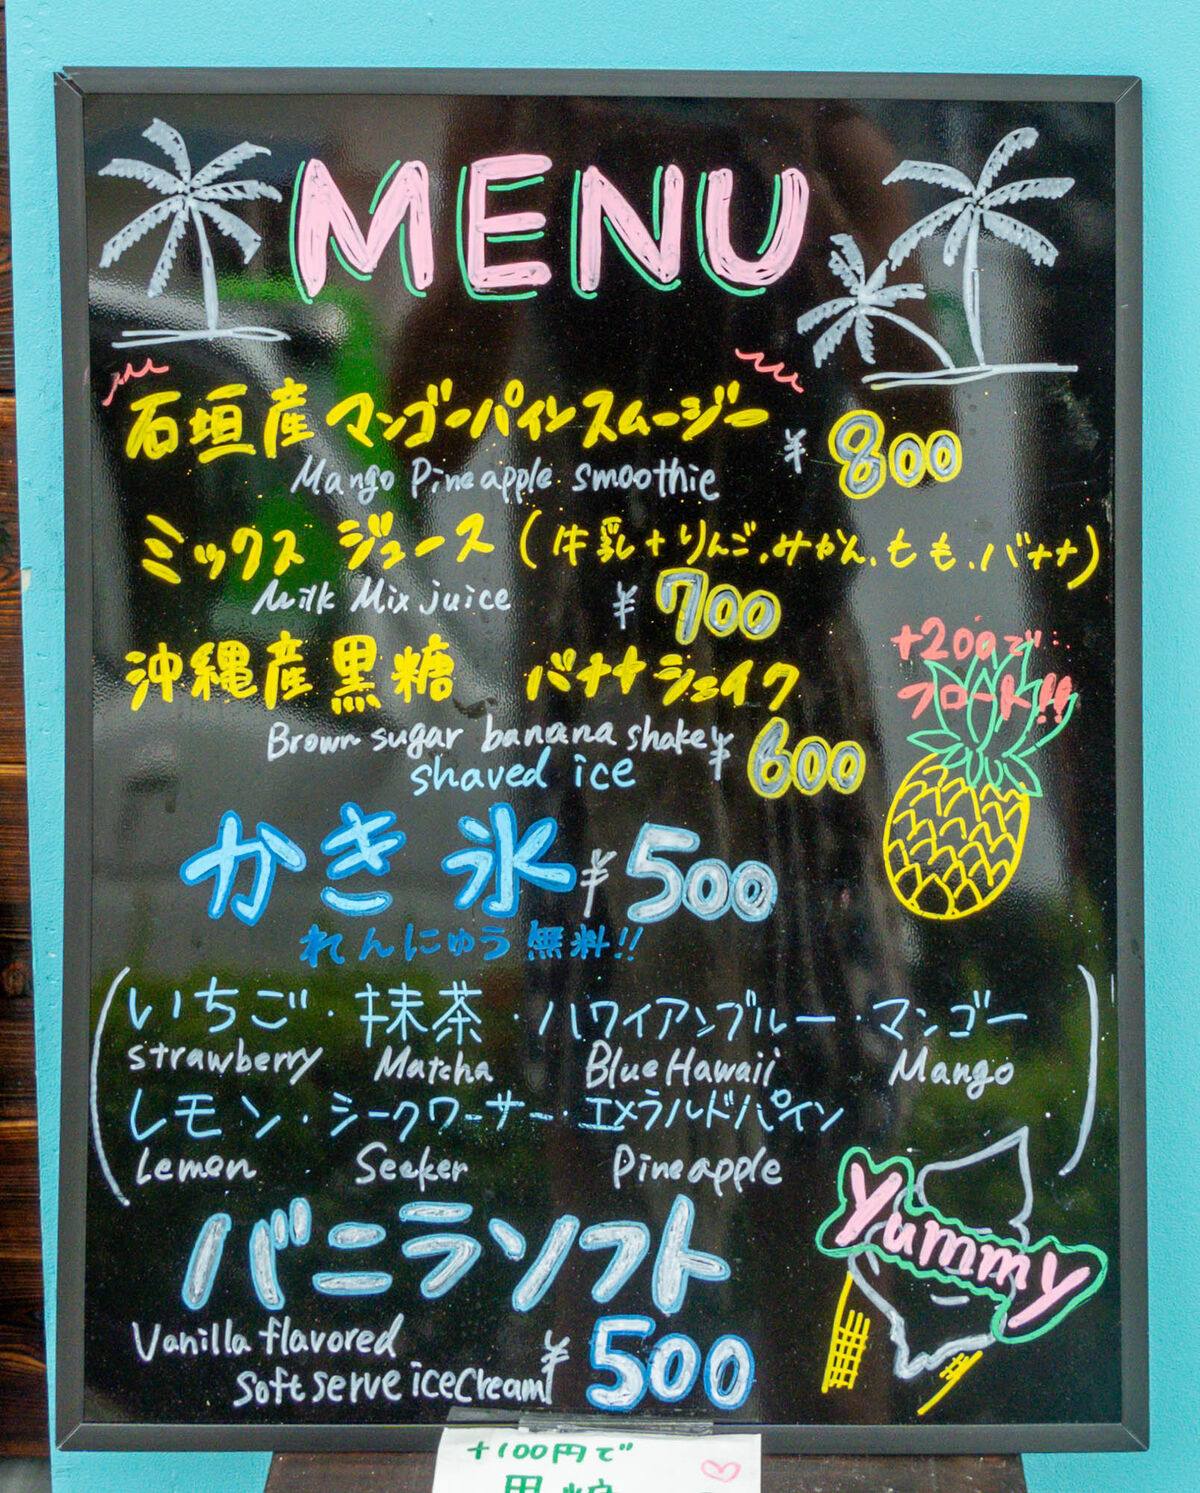 MENU
石垣産マンゴーパインスムージー ¥800
Mango Pineapple smoothie
ミックスジュース(牛乳+りんご.みかん.もも.バナナ)
Milk Mix juice ¥700
+200で
フロート!!
沖縄産黒糖 バナナシェイク
Brown sugar banana shake ¥600
shaved ice
かき氷 ¥500
れんにゅう無料!!
(いちご・抹茶・ハワイアンブルー・マンゴー
strawberry Matcha Blue Hawaii Mango
レモン・シークワーサー・エメラルドパイン)
Lemon Seeker Pineapple
バニラソフト
Yummy
Vanilla flavored
soft serve icecream ¥500
+100円で
黒糖